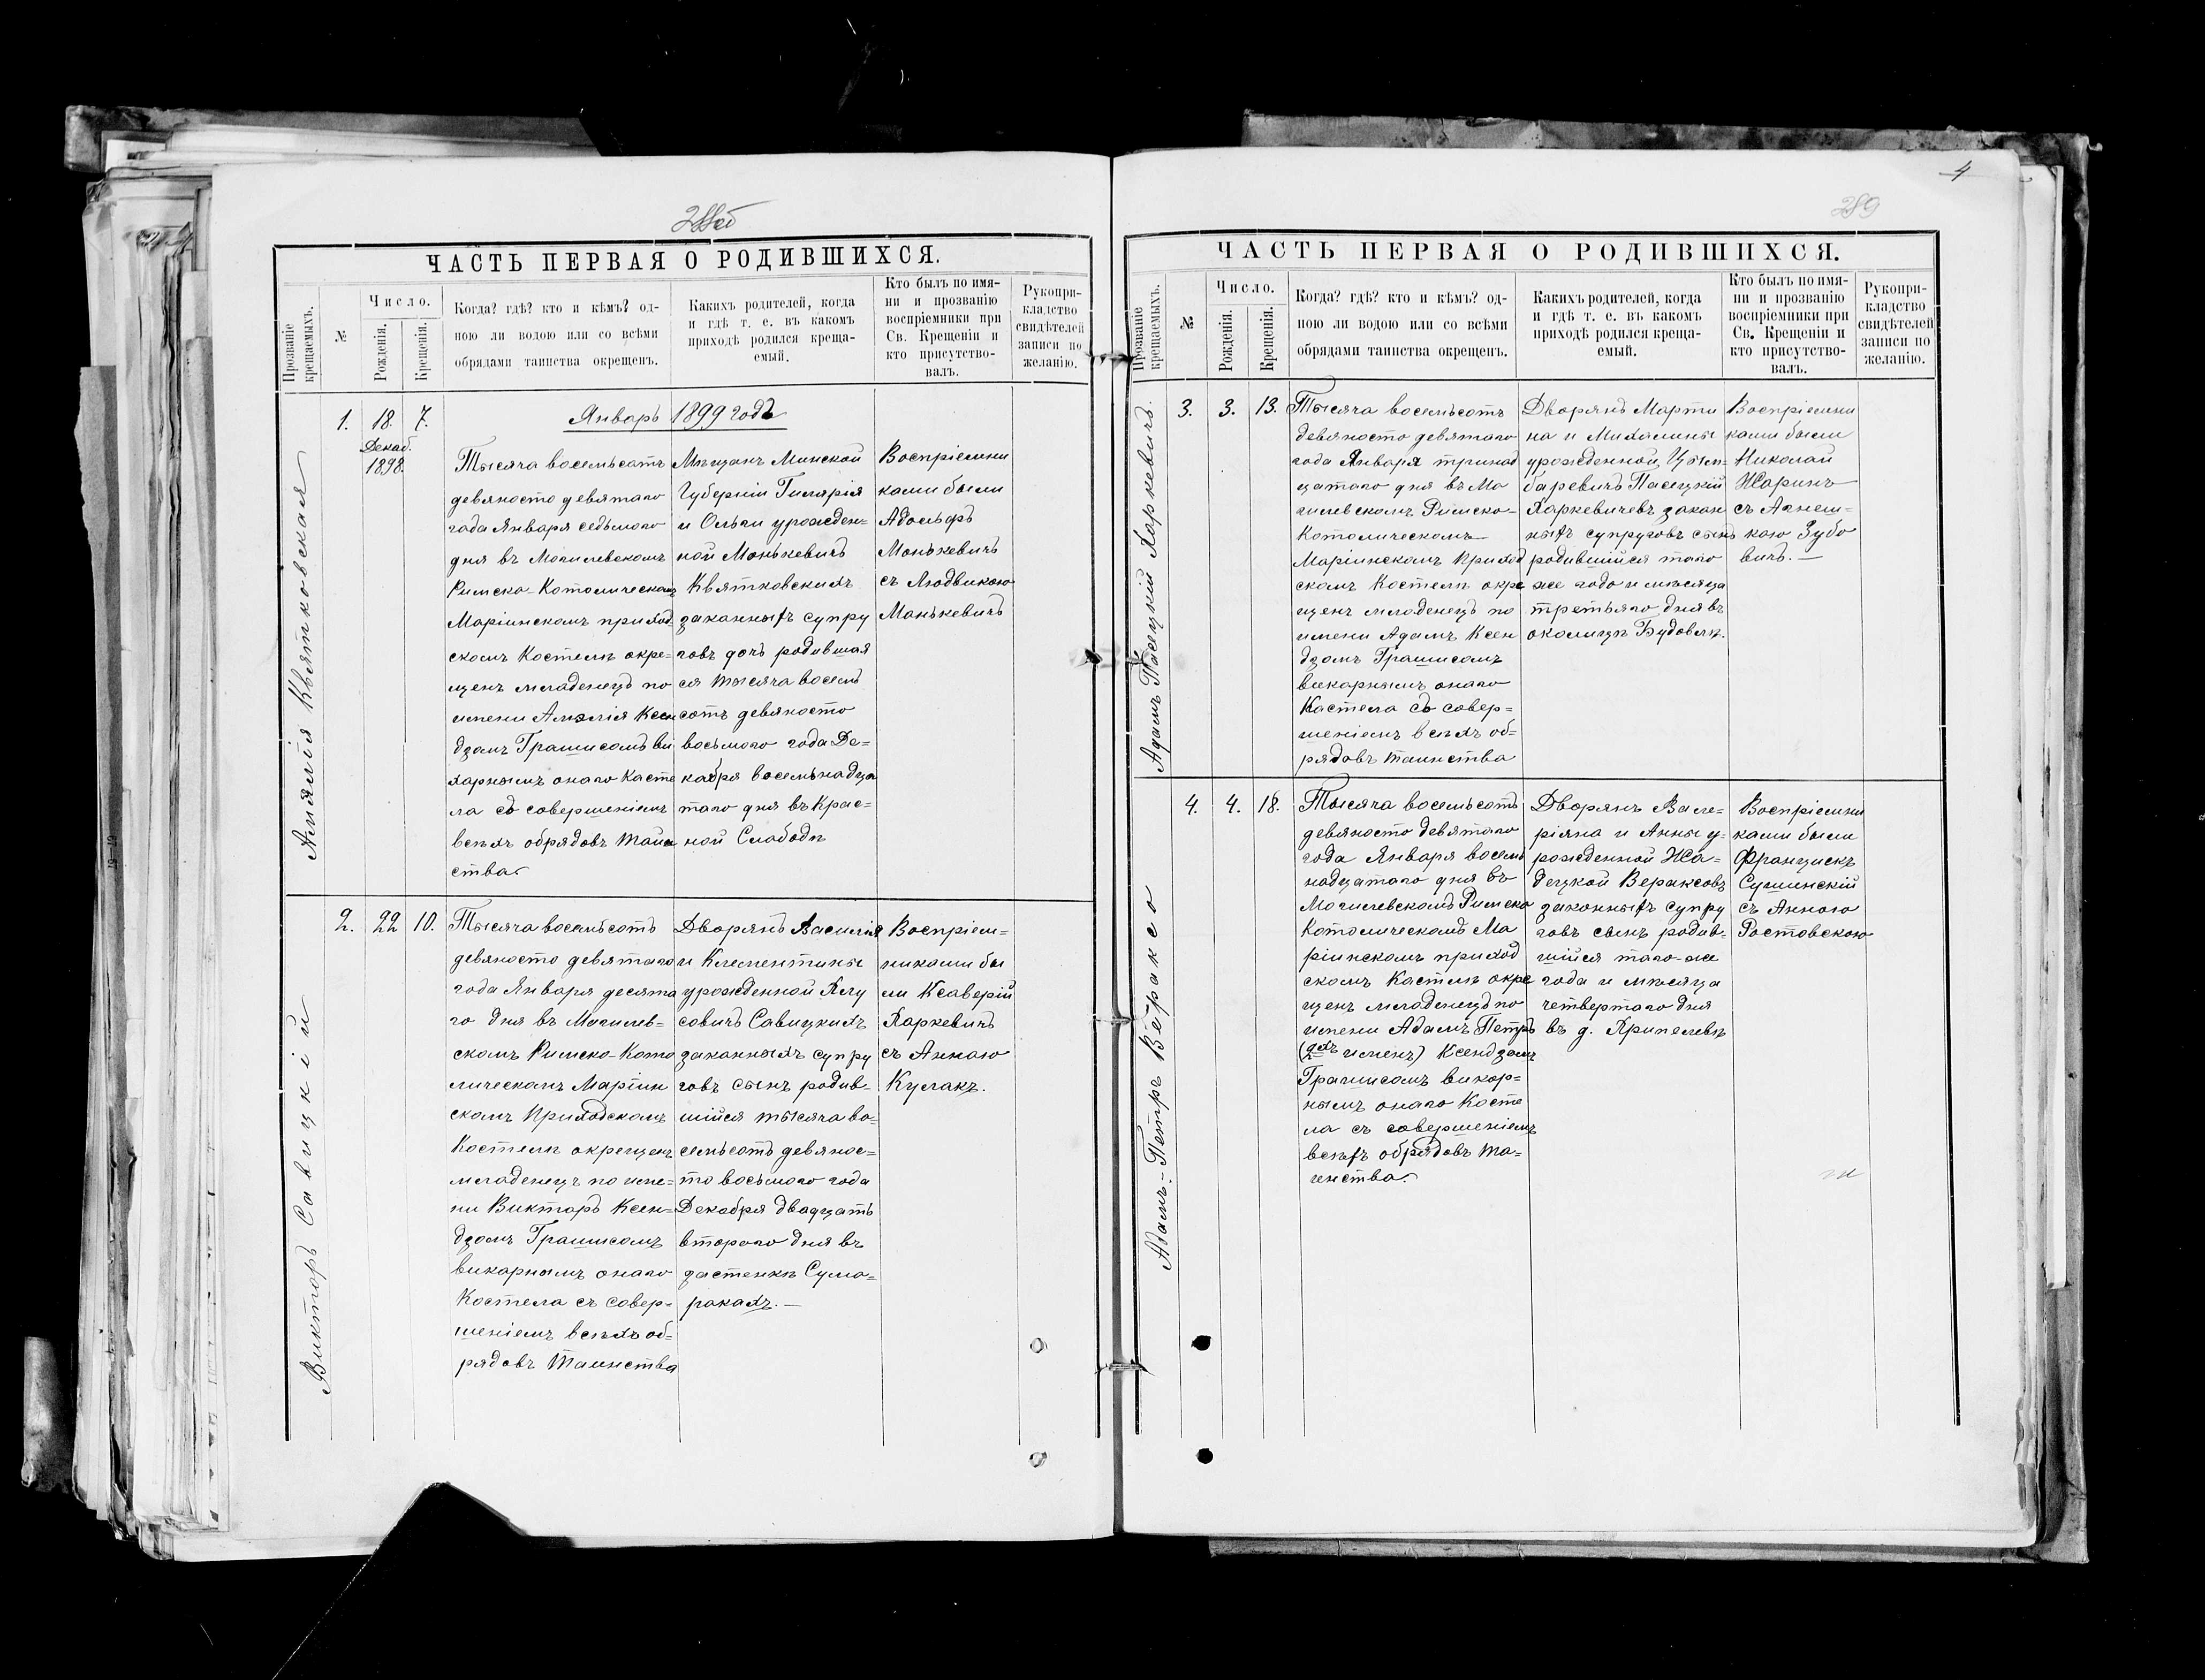 ЧАСТЬ ПЕРВАЯ О РОДИВШИХСЯ.
Прозваніе
крещаемыхъ.
№
Число.
Рожденія.
Крещенія.
Когда? гдѣ? кто и кѣмъ? од-
ною ли водою или со всѣми
обрядами таинства окрещенъ.
Какихъ родителей, когда
и гдѣ т. е. въ какомъ
приходѣ родился креща-
емый.
Кто былъ по имя-
ни и прозванію
воспріемники при
Св. Крещеніи и
кто присутство-
валъ.
Рукопри-
кладство
свидѣтелей
записи по
желанію.
Январь 1899 годъ
Амэлія Квятковская
1.
18.
Декаб.
1898.
7.
Тысяча восемьсотъ
девяносто девятаго
года Января седьмаго
дня въ Могилевскомъ
Римско-Католическомъ
Маріинскомъ приход-
скомъ Костелѣ окре-
щенъ младенецъ по
имени Амэлія Ксен
дзомъ Грашисомъ ви
карнымъ онаго Косте
ла съ совершеніемъ
всѣхъ обрядовъ Таин
ства.
Мѣщанъ Минской
Губерніи Гилярія
и Ольги урожден-
ной Монькевичъ
Квятковскихъ
законныхъ супру
говъ дочь родившая
ся тысяча восемь
сотъ девяносто
восьмого года Де-
кабря восемьнадца
таго дня въ Крас-
ной Слабодѣ
Воспріемни
ками были
Адольфъ
Монькевичъ
съ Людвикою
Манькевичъ
Викторъ Савицкій
2.
22
10.
Тысяча восемьсотъ
девяносто девятаго
года Января десята
го дня въ Могилев-
скомъ Римско-Като
лическомъ Маріин
скомъ Приходскомъ
Костелѣ окрещенъ
младенецъ по име-
ни Викторъ Ксен-
дзомъ Грашисомъ
викарнымъ онаго
Костела съ совер-
шеніемъ всѣхъ об-
рядовъ Таинства
Дворянъ Василія
и Клементины
урожденной
совичъ Савицкихъ
законныхъ супру
говъ сынъ родив-
шійся тысяча во-
семьсотъ девянос-
то восьмого года
Декабря двадцать
второго дня въ
застенкѣ Сума-
рокахъ.
Воспріем-
никами бы
ли Ксаверій
Харкевичъ
съ Анною
Кулакъ.
4
289
ЧАСТЬ ПЕРВАЯ О РОДИВШИХСЯ.
Прозваніе
крещаемыхъ.
№
Число.
Рожденія.
Крещенія.
Когда? гдѣ? кто и кѣмъ? од-
ною ли водою или со всѣми
обрядами таинства окрещенъ.
Какихъ родителей, когда
и гдѣ т. е. въ какомъ
приходѣ родился креща-
емый.
Кто былъ по имя-
ни и прозванію
воспріемники при
Св. Крещеніи и
кто присутство-
валъ.
Рукопри-
кладство
свидѣтелей
записи по
желанію.
Адамъ Пасецкій Харкевичъ.
3.
3.
13.
Тысяча восемьсотъ
девяносто девятаго
года Января тринад
цатаго дня въ Мо
гилевскомъ Римско-
Католическомъ
Маріинскомъ Приход
скомъ Костелѣ окре
щенъ младенецъ по
имени Адамъ Ксен
дзомъ Грашисомъ
викарнымъ онаго
Костела съ совер-
шеніемъ всѣхъ об-
рядовъ таинства
Дворянъ Марти
на и Михалины
урожденной Цым-
баревичъ Пасецкій
Харкевичевъ закон
ныхъ супруговъ сынъ
родившійся того
же года и мѣсяца
третьяго дня въ
околицѣ Будовлѣ.
Воспріемни
ками были
Николай
Жаринъ
съ Агнеш-
кою Зубо
вичъ.
Адамъ-Петръ Вераксо
4.
4.
18.
Тысяча восемьсотъ
девяносто девятаго
года Января восемь
надцатаго дня въ
Могилевскомъ Римско
Католическомъ Ма
ріинскомъ приход
скомъ Костелѣ окре
щенъ младенецъ по
имени Адамъ Петръ
(2хъ именъ) Ксендзомъ
Грашисомъ викар-
нымъ онаго Косте
ла съ совершеніемъ
всѣхъ обрядовъ та-
инства.
Дворянъ Вале-
ріяна и Анны у-
рожденной Жа-
децкой Вераксовъ
законныхъ супру
говъ сынъ родив-
шійся того-же
года и мѣсяца
четвертаго дня
въ д. Крипелевѣ
Воспріемни
ками были
Францискъ
Сушинскій
съ Анною
Ростовскою